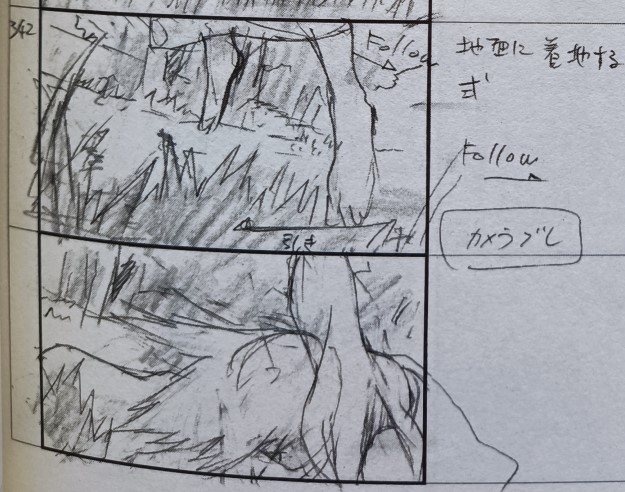 342
Follow
地面に着地する
式
Follow
カメラブレ
引き